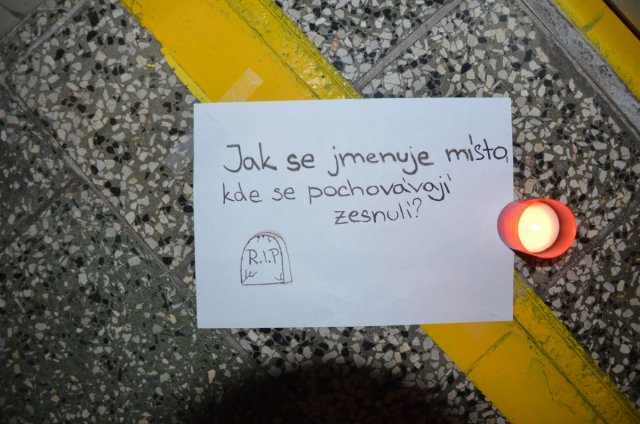 Jak se jmenuje místo,
kde se pochovávají
zesnulí?
R.I.P